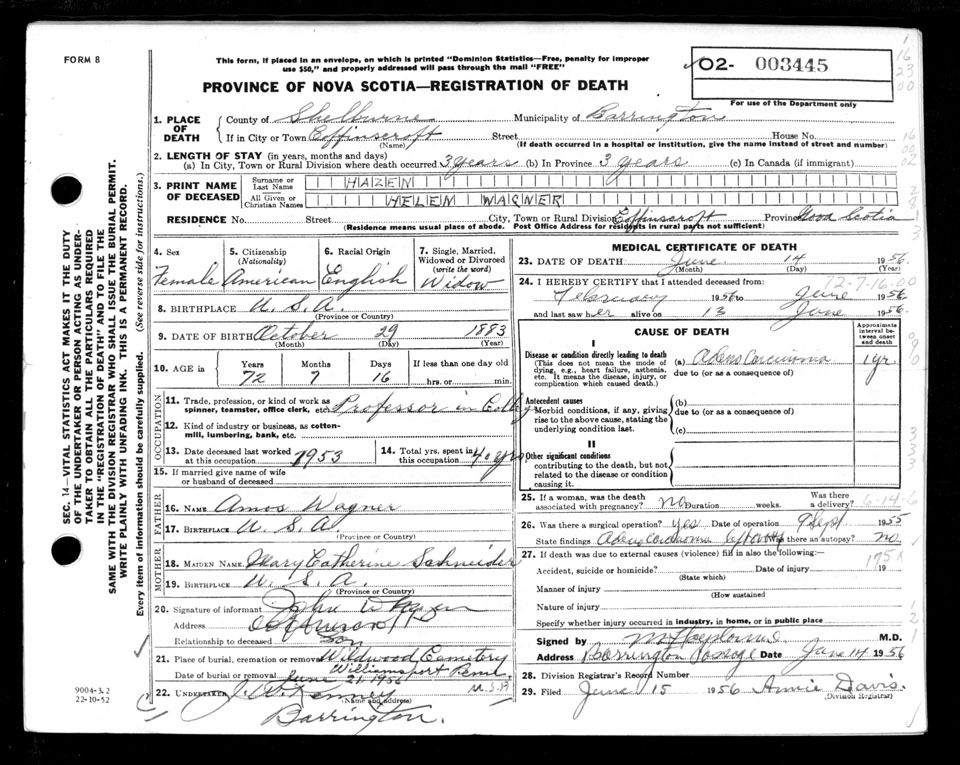 FORM 8
This form, if placed in an envelope, on which is printed "Dominion Statistics—Free, penalty for improper
use $50," and properly addressed will pass through the mail "FREE"
PROVINCE OF NOVA SCOTIA—REGISTRATION OF DEATH
02- 003445
For use of the Department only
1. PLACE OF DEATH
County of Shelburne Municipality of Barrington
If in City or Town Coffinscroft Street House No.
(Name) (If death occurred in a hospital or institution, give the name instead of street and number)
2. LENGTH OF STAY (in years, months and days)
(a) In City, Town or Rural Division where death occurred 3 years (b) In Province 3 years (c) In Canada (if immigrant)
3. PRINT NAME OF DECEASED
Surname or Last Name HAZEN
All Given or Christian Names HELEN WAGNER
RESIDENCE No. Street City, Town or Rural Division Coffinscroft Province Nova Scotia
(Residence means usual place of abode. Post Office Address for residents in rural parts not sufficient)
4. Sex
Female
5. Citizenship
(Nationality)
American
6. Racial Origin
English
7. Single, Married,
Widowed or Divorced
(write the word)
Widow
8. BIRTHPLACE U.S.A.
(Province or Country)
9. DATE OF BIRTH October 29 1883
(Month) (Day) (Year)
10. AGE in
Years Months Days If less than one day old
72 7 16 hrs. or min.
OCCUPATION
11. Trade, profession, or kind of work as
spinner, teamster, office clerk, etc. Professor in College
12. Kind of industry or business, as cotton-
mill, lumbering, bank, etc.
13. Date deceased last worked
at this occupation 1953
14. Total yrs. spent in
this occupation 40 yrs
15. If married give name of wife
or husband of deceased
FATHER
16. NAME Amos Wagner
17. BIRTHPLACE U.S.A.
(Province or Country)
MOTHER
18. MAIDEN NAME Mary Catherine Schneider
19. BIRTHPLACE U.S.A.
(Province or Country)
20. Signature of informant John W Hazen
Address
Relationship to deceased Son
21. Place of burial, cremation or removal Wildwood Cemetery
Williamsport Penn.
Date of burial or removal June 21, 1956
22. UNDERTAKER Kenney
(Name and address)
Barrington.
MEDICAL CERTIFICATE OF DEATH
23. DATE OF DEATH June 14 1956
(Month) (Day) (Year)
72-7-16-00
24. I HEREBY CERTIFY that I attended deceased from:
February 1956 to June 1956
and last saw her alive on 13 June 1956
CAUSE OF DEATH
Approximate interval between onset and death
I
Disease or condition directly leading to death
(This does not mean the mode of
dying, e.g., heart failure, asthenia,
etc. It means the disease, injury, or
complication which caused death.)
(a) Adeno Carcinoma 1 yr.
due to (or as a consequence of)
Antecedent causes
Morbid conditions, if any, giving
rise to the above cause, stating the
underlying condition last.
(b)
due to (or as a consequence of)
(c)
II
Other significant conditions
contributing to the death, but not
related to the disease or condition
causing it.
25. If a woman, was the death
associated with pregnancy? no Duration weeks. Was there
a delivery?
6-14-6
26. Was there a surgical operation? yes Date of operation 9 Sept 1955
State findings Adeno Carcinoma left ovary Was there an autopsy? no
27. If death was due to external causes (violence) fill in also the following:—
Accident, suicide or homicide? Date of injury 19
(State which)
Manner of injury
(How sustained
Nature of injury
Specify whether injury occurred in industry, in home, or in public place
Signed by M.D.
Address Barrington Passage Date June 14 1956
28. Division Registrar's Record Number
29. Filed June 15 1956 Annie Davis.
(Division Registrar)
SEC. 14—VITAL STATISTICS ACT MAKES IT THE DUTY
OF THE UNDERTAKER OR PERSON ACTING AS UNDER-
TAKER TO OBTAIN ALL THE PARTICULARS REQUIRED
IN THE "REGISTRATION OF DEATH" AND TO FILE THE
SAME WITH THE DIVISION REGISTRAR WHO SHALL ISSUE THE BURIAL PERMIT.
WRITE PLAINLY WITH UNFADING INK. THIS IS A PERMANENT RECORD.
Every item of information should be carefully supplied. (See reverse side for instructions.)
9004-3.2
22-10-52